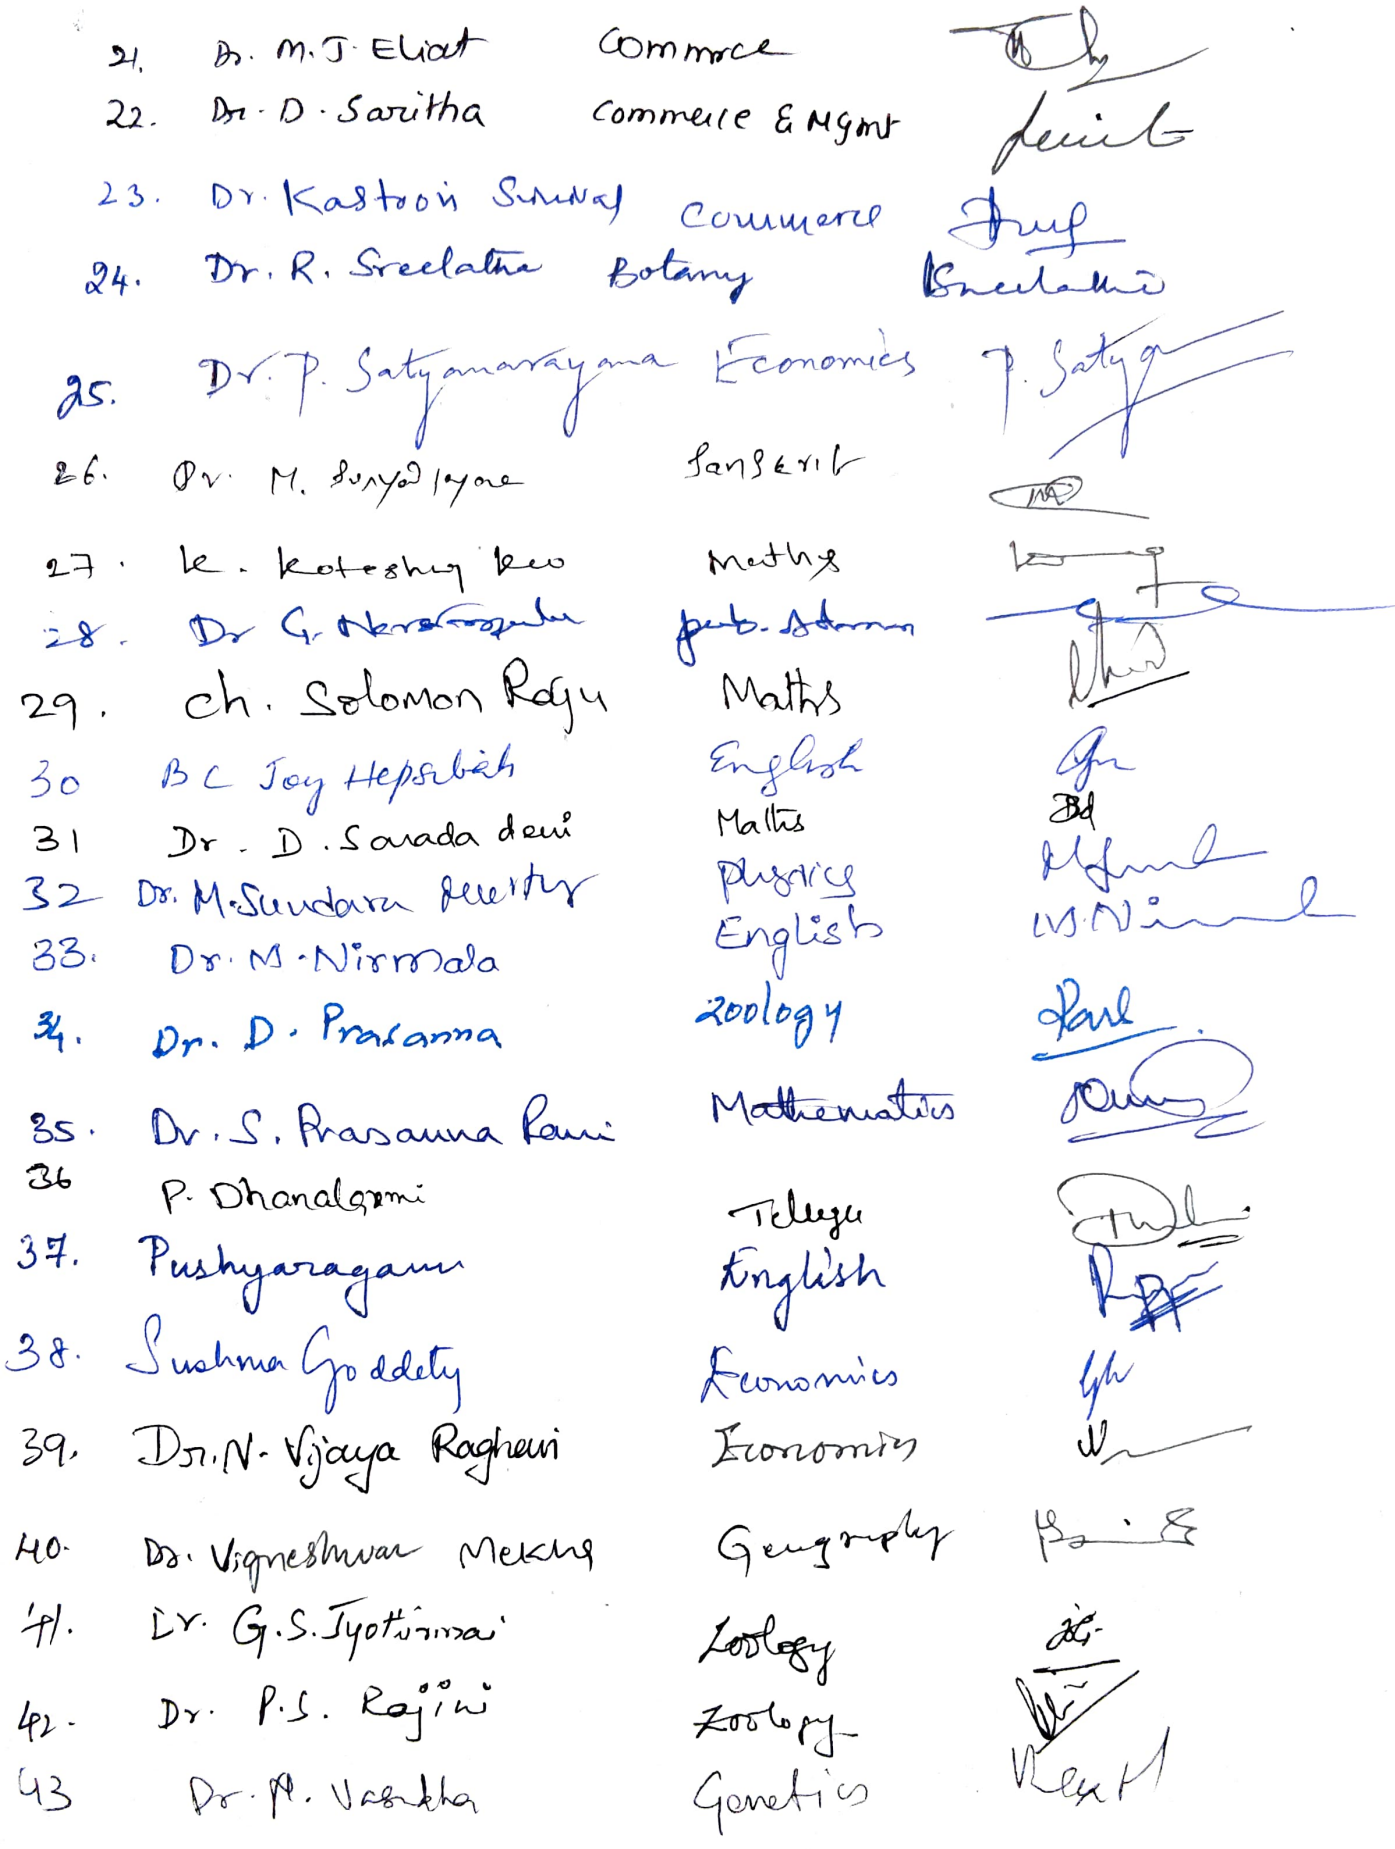 21. Dr. M. J. Eliat Commrce
22. Dr. D. Saritha Commerce & Mgmt
23. Dr. Kastoori Commerce
24. Dr. R. Sreelatha Botany Sreelatha
25. Dr. P. Satyanarayana Economics P. Satya
26. Dr. M. Sanskrit
27. K. Koteshw Rao Maths
28. Dr G. Pub. Admn
29. Ch. Solomon Raju Maths
30 B C Joy Hepsibah English
31 Dr. D. Sarada devi Maths Bd
32 Dr. M. Sundara Murthy Physics
33. Dr. M. Nirmala English M. Nirmala
34. Dr. D. Prasanna Zoology
35. Dr. S. Prasanna Rani Mathematics
36 P. Dhanalaxmi Telugu
37. Pushyaragam English
38. Sushma Goddety Economics
39. Dr. N. Vijaya Raghavi Economics
40. Dr. Vigneshwar Mekha Geography
41. Dr. G.S. Jyothirmai Zoology
42. Dr. P.S. Rajini Zoology
43 Dr. M. Vasudha Genetics